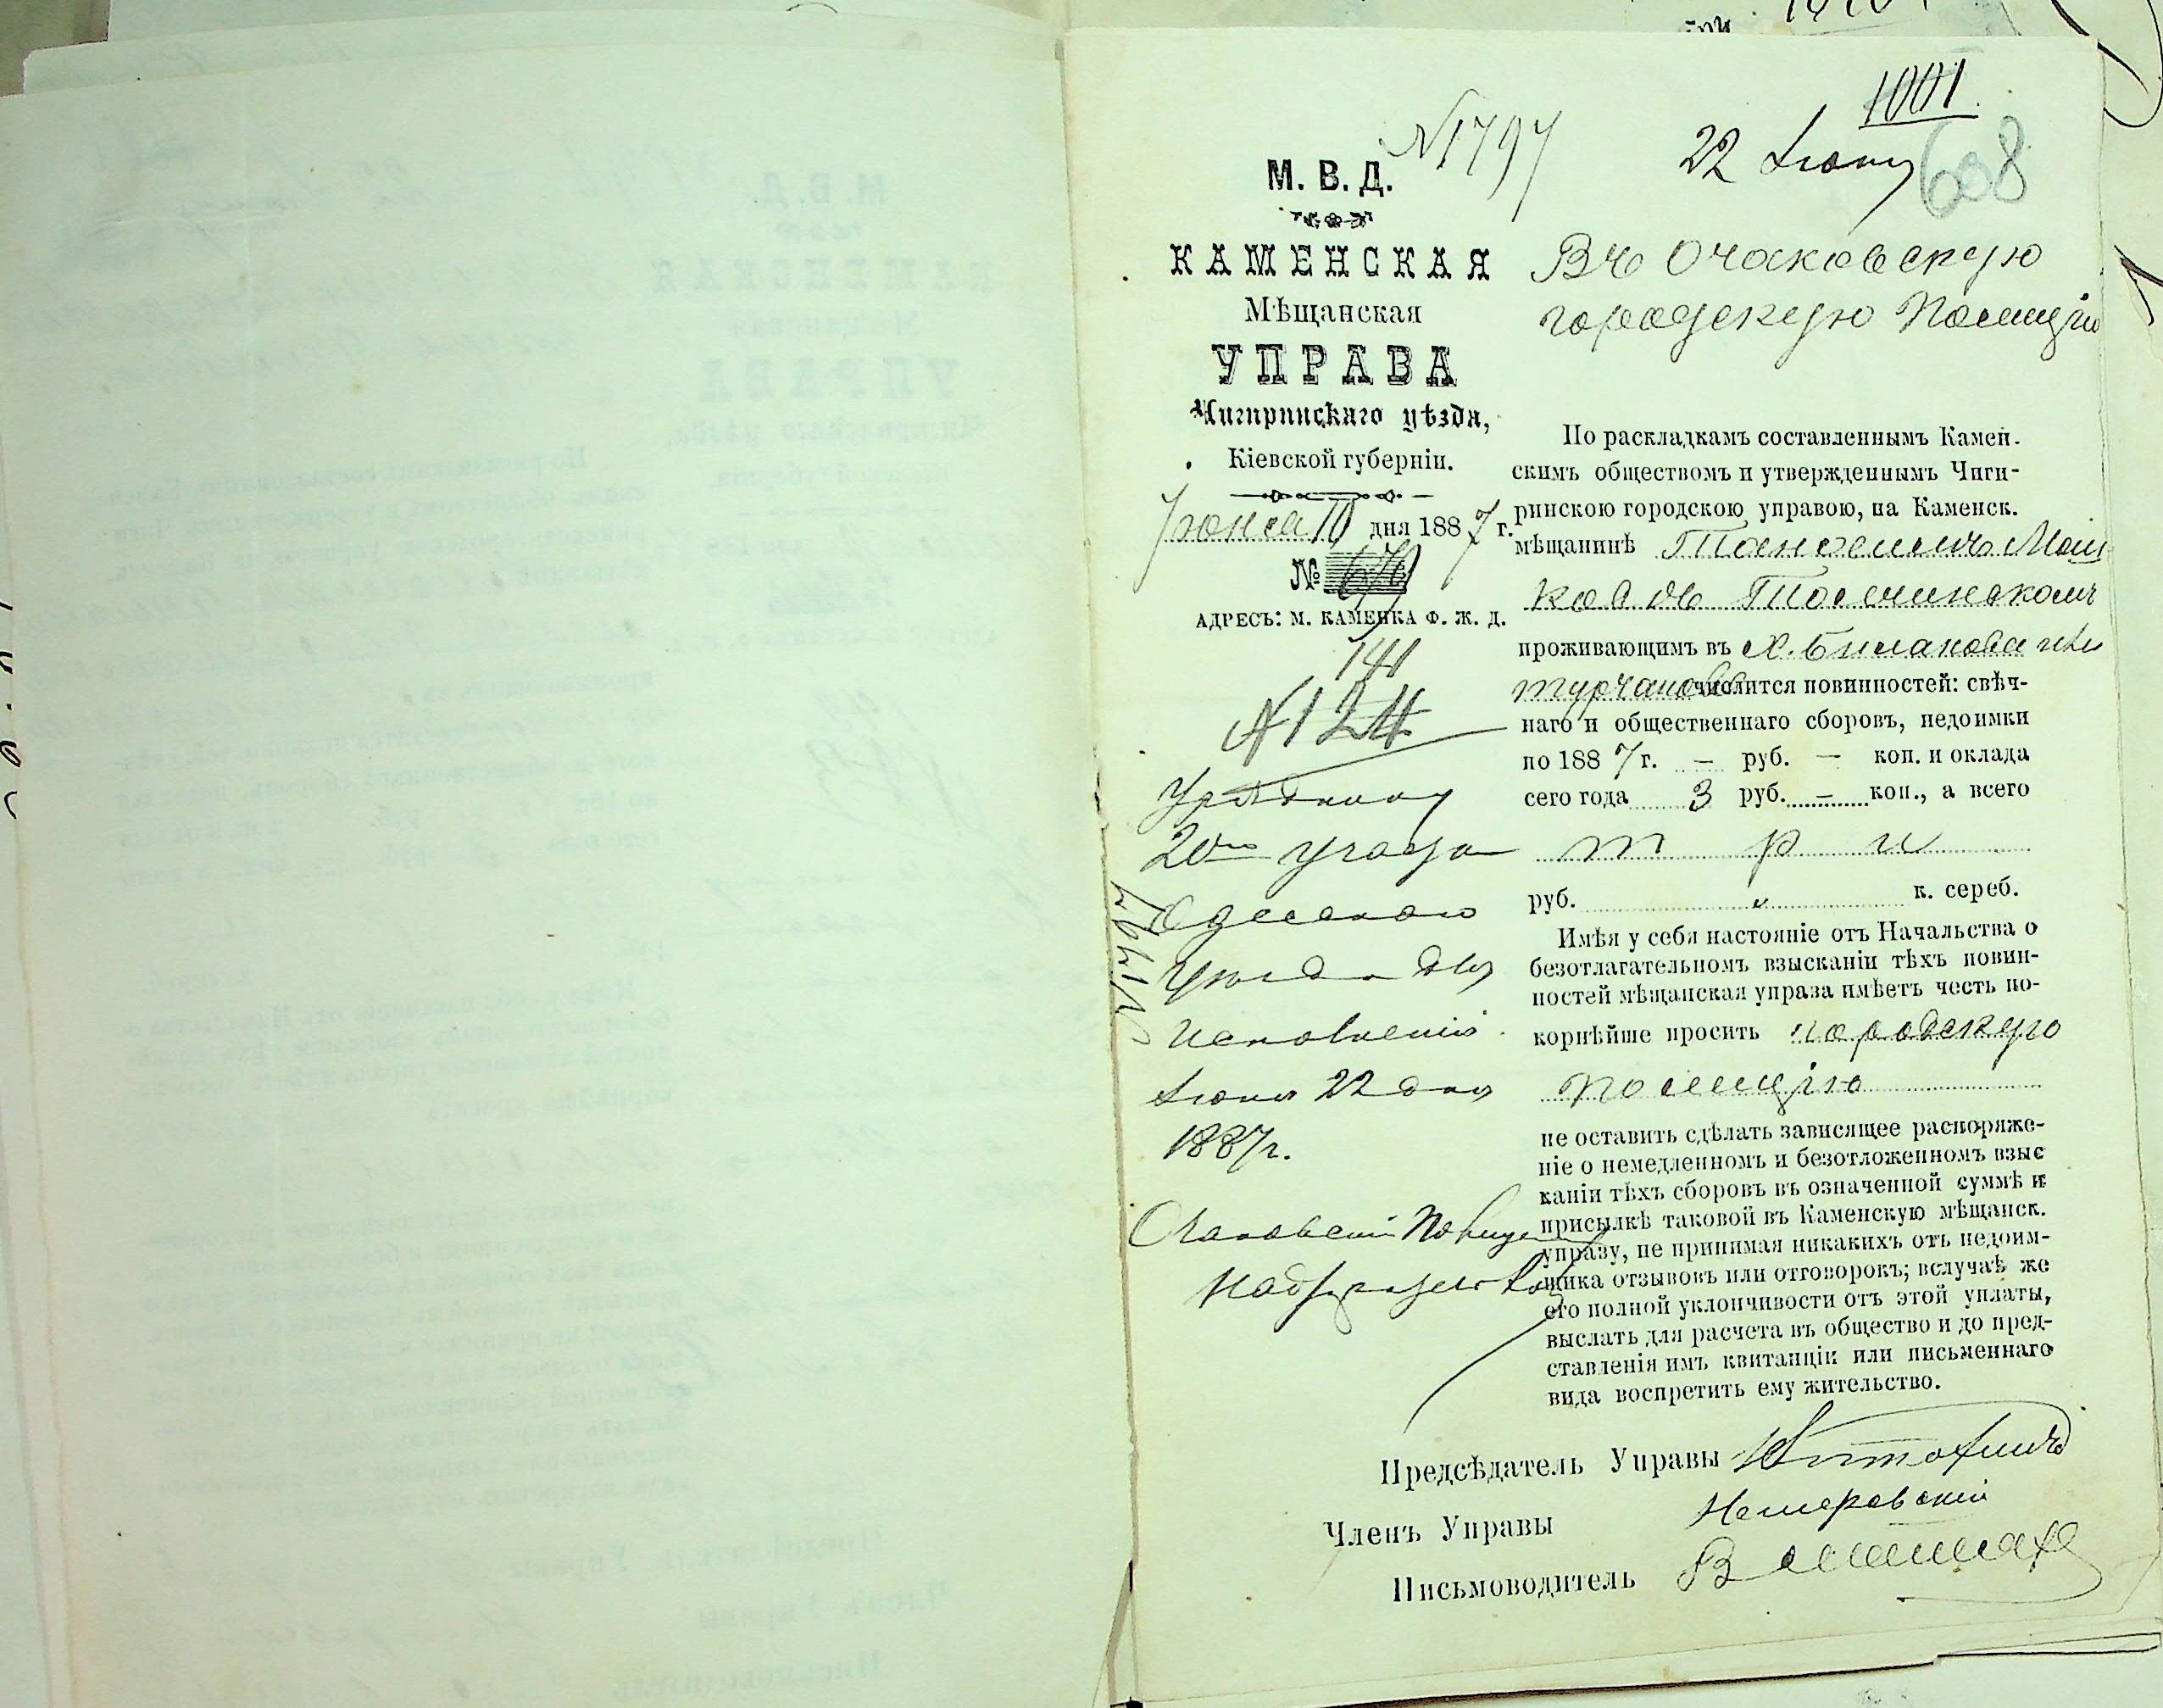 1001
22 Іюня
608
№ 1797
М. В. Д.
КАМЕНСКАЯ
Мѣщанская
УПРАВА
Чигиринскаго уѣзда,
Кіевской губерніи.
Іюня 10 дня 1887 г.
№ 670
АДРЕСЪ: М. КАМЕНКА Ф. Ж. Д.
141
№ 124
Уряднику
20го участка
Одесскаго
Уѣзда для
исполненія
Іюня 22 дня
1887г.
Очаковскій Полицейскій
Надзиратель
№ 1797
Въ Очаковскую
городскую Полицію
По раскладкамъ составленнымъ Камен-
скимъ обществомъ и утвержденнымъ Чиги-
ринскою городскою управою, на Каменск.
мѣщанинѣ
проживающимъ въ Х. Бишлакова или
турчанова числится повинностей: свѣч-
наго и общественнаго сборовъ, недоимки
по 1887 г. — руб. — коп. и оклада
сего года 3 руб. — коп., а всего
три
руб. „ к. сереб.
Имѣя у себя настояніе отъ Начальства о
безотлагательномъ взысканіи тѣхъ повин-
ностей мѣщанская управа имѣетъ честь по-
корнѣйше просить городскую
полицію
не оставить сдѣлать зависящее распоряже-
ніе о немедленномъ и безотложенномъ взыс
каніи тѣхъ сборовъ въ означенной суммѣ и
присылкѣ таковой въ Каменскую мѣщанск.
управу, не принимая никакихъ отъ недоим-
щика отзывовъ или отговорокъ; вслучаѣ же
его полной уклончивости отъ этой уплаты,
выслать для расчета въ общество и до пред-
ставленія имъ квитанціи или письменнаго
вида воспретить ему жительство.
Предсѣдатель Управы
Членъ Управы
Письмоводитель